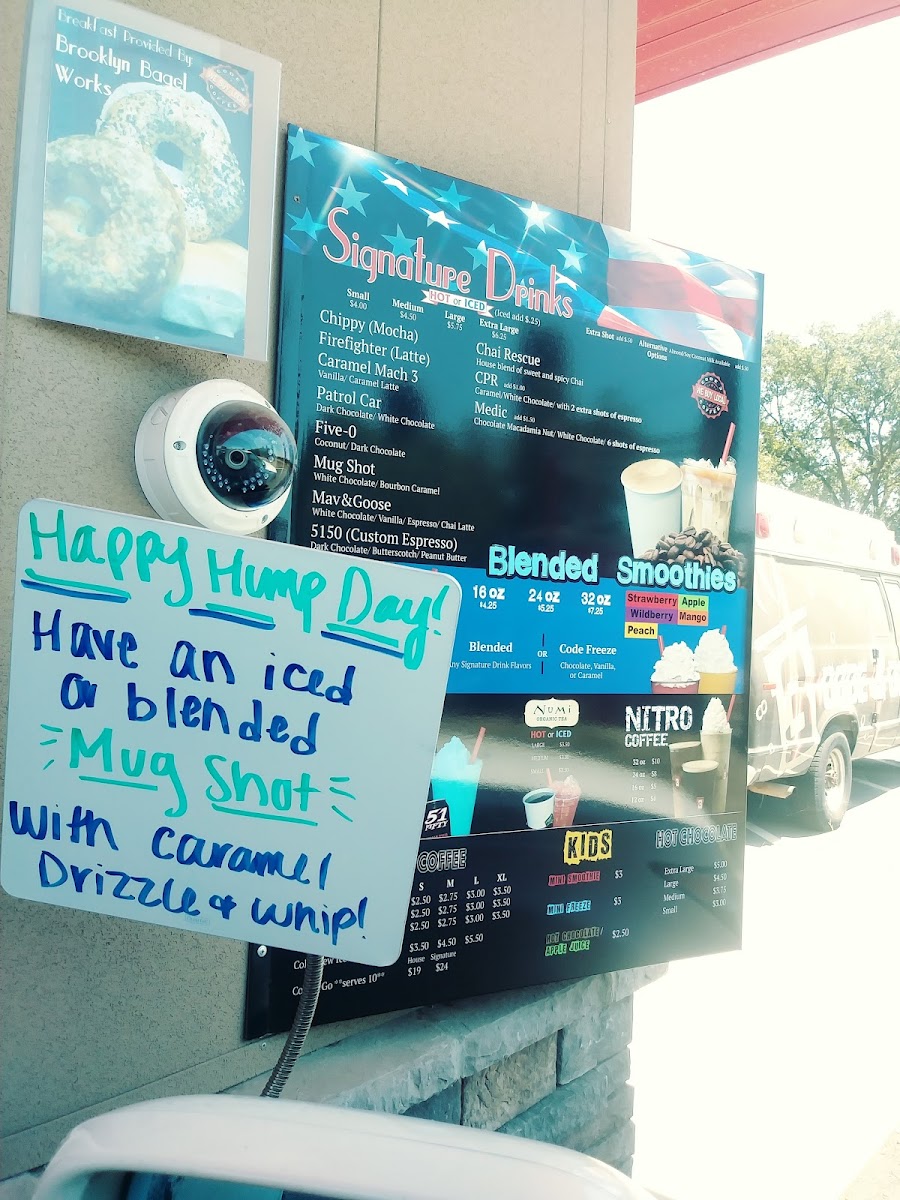 Breakfast Provided By:
Brooklyn Bagel
Works
Signature Drinks
HOT or ICED (Iced add $.25)
Small Medium Large Extra Large
$4.00 $4.50 $5.75 $6.25
Extra Shot add $.50
Alternative Options Almond/Soy/Coconut Milk Available add $.50
Chippy (Mocha)
Firefighter (Latte)
Caramel Mach 3
Vanilla/ Caramel Latte
Patrol Car
Dark Chocolate/ White Chocolate
Five-0
Coconut/ Dark Chocolate
Mug Shot
White Chocolate/ Bourbon Caramel
Mav&Goose
White Chocolate/ Vanilla/ Espresso/ Chai Latte
5150 (Custom Espresso)
Dark Chocolate/ Butterscotch/ Peanut Butter
Chai Rescue
House blend of sweet and spicy Chai
CPR add $1.00
Caramel/White Chocolate/ with 2 extra shots of espresso
Medic add $1.50
Chocolate Macadamia Nut/ White Chocolate/ 6 shots of espresso
WE BUY LOCAL
Happy Hump Day!
Have an iced
or blended
Mug Shot
with caramel
Drizzle & whip!
Blended Smoothies
16 oz 24 oz 32 oz
$4.25 $5.25 $7.25
Strawberry Apple
Wildberry Mango
Peach
Blended OR Code Freeze
Any Signature Drink Flavors
Chocolate, Vanilla,
or Caramel
Numi
ORGANIC TEA
HOT or ICED
LARGE
NITRO
COFFEE
32 oz $10
24 oz $8
16 oz
12 oz
51
FIFTY
COFFEE
S M L XL
$2.50 $2.75 $3.00 $3.50
$2.50 $2.75 $3.00 $3.50
$2.50 $2.75 $3.00 $3.50
$3.50 $4.50 $5.50
House Signature
Go **serves 10** $19 $24
KIDS
MINI SMOOTHIE $3
MINI FREEZE $3
HOT CHOCOLATE/
APPLE JUICE $2.50
HOT CHOCOLATE
Extra Large $5.00
Large $4.50
Medium $3.75
Small $3.00